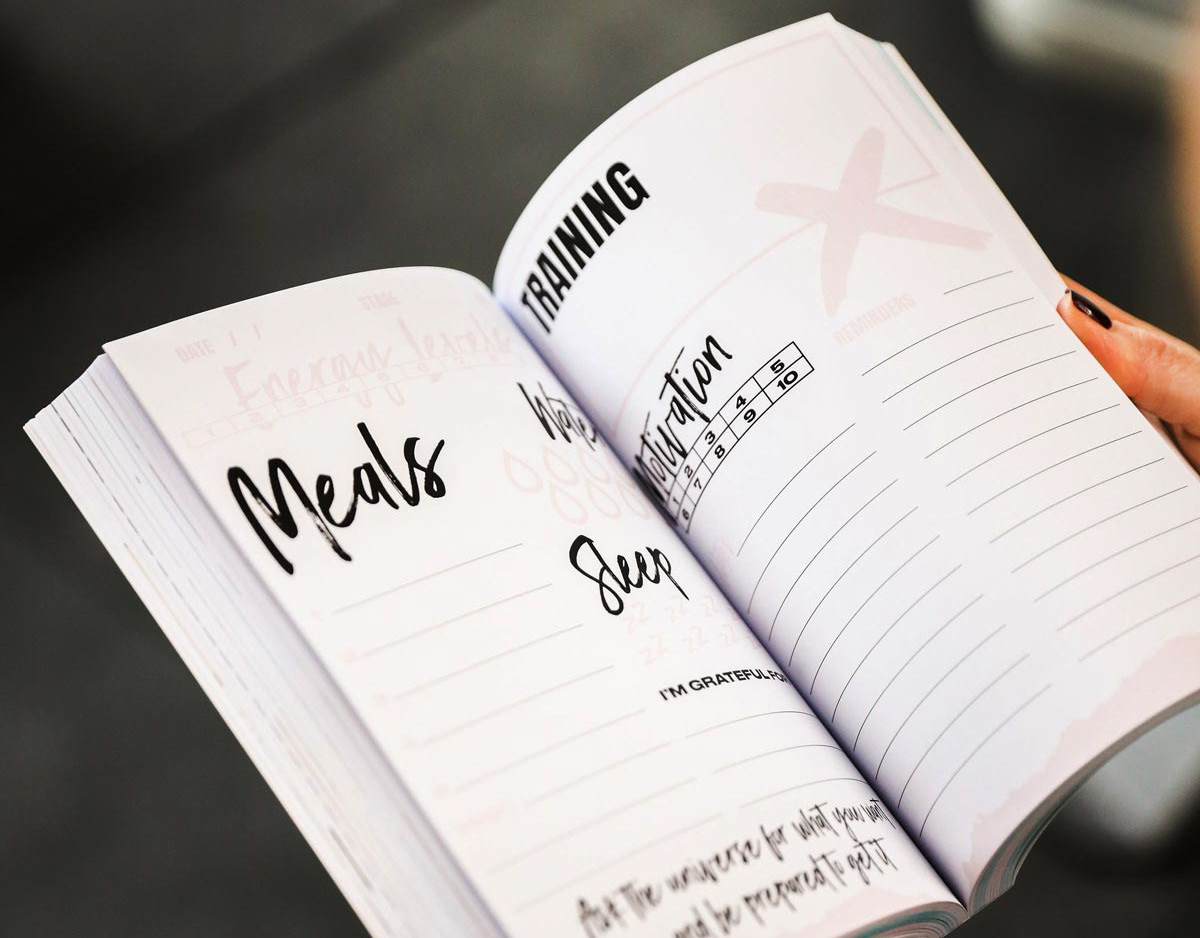 DATE / /
STAGE
Energy levels
Meals
Wate
Sleep
zz zz zz
zz zz zz
I'M GRATEFUL FOR
Ask the universe for what you want
and be prepared to get it
TRAINING
Motivation
1 2 3 4 5
6 7 8 9 10
REMINDERS